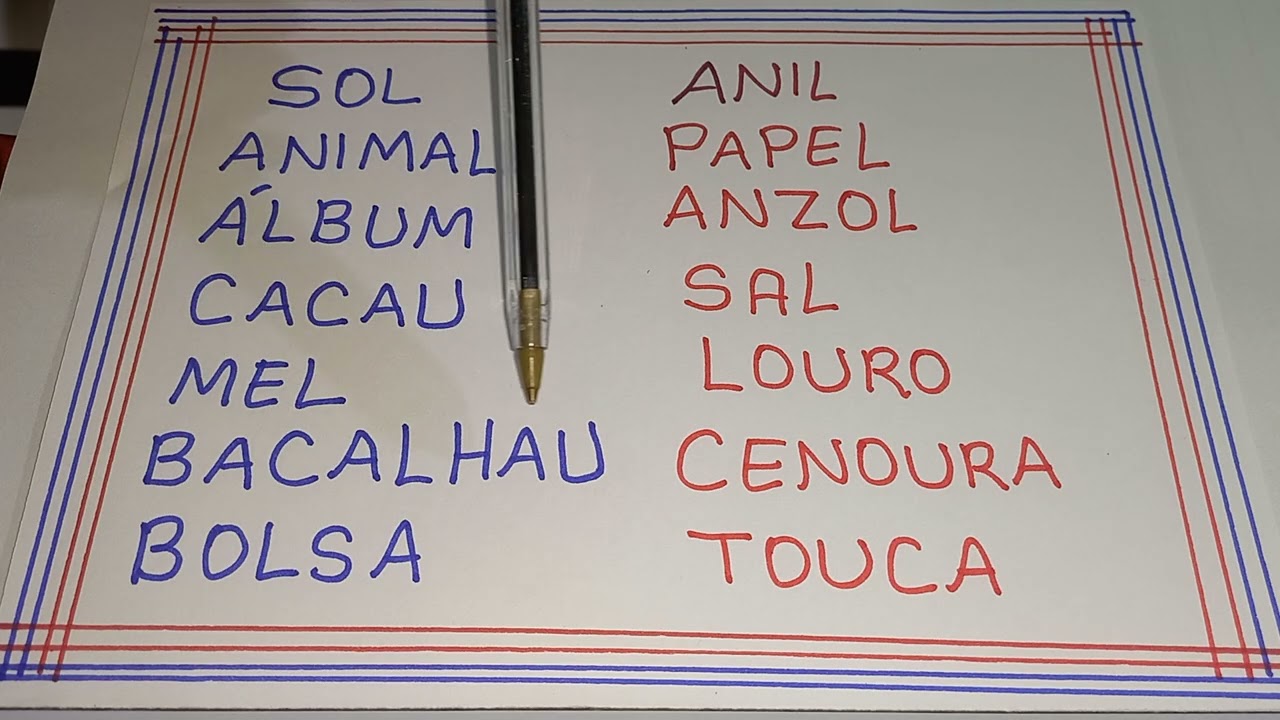 SOL
ANIMAL
ÁLBUM
CACAU
MEL
BACALHAU
BOLSA
ANIL
PAPEL
ANZOL
SAL
LOURO
CENOURA
TOUCA